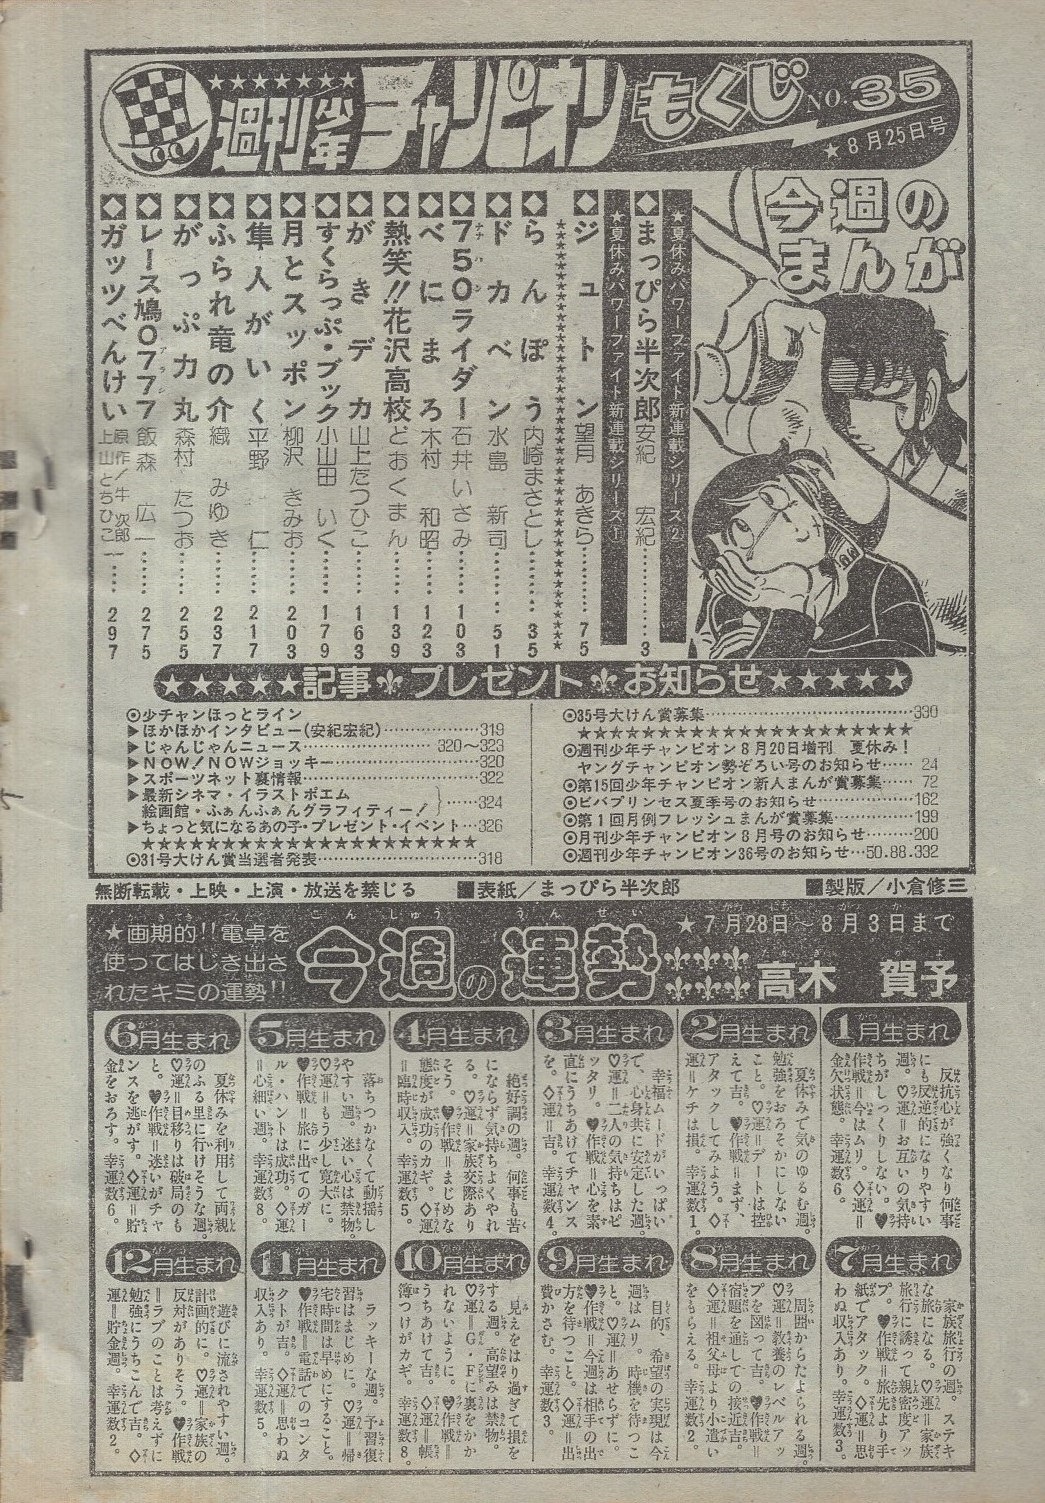 週刊少年チャンピオン もくじ NO.35
★8月25日号
今週の
まんが
★夏休みパワーファイト新連載シリーズ②
まっぴら半次郎 安紀 宏紀………3
★夏休みパワーファイト新連載シリーズ①
ジュトン 望月 あきら………75
★★★★★★★★★★★★★★★★★★★★
らんぽう 内崎まさとし………35
ドカベン 水島 新司………51
750ライダー 石井いさみ………103
ナナハン
べにまろ 木村 和昭………123
熱笑!!花沢高校 どおくまん………139
がきデカ 山上たつひこ………163
すくらっぷ・ブック 小山田 いく………179
月とスッポン 柳沢 きみお………203
隼人がいく 平野 仁………217
ふられ竜の介 織 みゆき………237
がっぷ力丸 森村 たつお………255
レース鳩0777 飯森 広一………275
アラシ
ガッツべんけい 原作/牛 次郎 上山とちひこ……297
★★★★★記事⚜プレゼント⚜お知らせ★★★★★
◎少チャンほっとライン
▶ほかほかインタビュー(安紀宏紀)………319
▶じゃんじゃんニュース………320〜323
▶NOW!NOWジョッキー………320
▶スポーツネット裏情報………322
▶最新シネマ・イラストポエム
絵画館・ふぁんふぁんグラフィティー!……324
▶ちょっと気になるあの子・プレゼント・イベント…326
★★★★★★★★★★★★★★★★★★★★
◎31号大けん賞当選者発表………318
◎35号大けん賞募集………330
★★★★★★★★★★★★★★★★★★★★
◎週刊少年チャンピオン8月20日増刊 夏休み!
ヤングチャンピオン勢ぞろい号のお知らせ……24
◎第15回少年チャンピオン新人まんが賞募集……72
◎ビバプリンセス夏季号のお知らせ………162
◎第1回月例フレッシュまんが賞募集………199
◎月刊少年チャンピオン8月号のお知らせ………200
◎週刊少年チャンピオン36号のお知らせ…50.88.332
無断転載・上映・上演・放送を禁じる ■表紙/まっぴら半次郎 ■製版/小倉修三
★画期的!!電卓を
使ってはじき出さ
れたキミの運勢!!
今週の運勢
こんしゅう うんせい
★7月28日〜8月3日まで
高木 賀予
1月生まれ
反抗心が強くなり何事
にも反逆的になりやすい
週。♡運=お互いの気持
ちがしっくりしない。♥
作戦=今はムリ。◇運=
金欠状態。幸運数6。
2月生まれ
夏休みで気のゆるむ週。
勉強をおろそかにしない
こと。♡運=デートは控
えて吉。♥作戦=まず、
アタックしてみよう。◇
運=ケチは損。幸運数1。
3月生まれ
幸福ムードがいっぱい
で、心身共に安定した週。
♡運=二人の気持ちはピ
ッタリ。♥作戦=心を素
直にうちあけてチャンス
を。◇運=吉。幸運数4。
4月生まれ
絶好調の週。何事も苦
にならず気持ちよくやれ
る。♡運=家族交際あり
そう。♥作戦=まじめな
態度が成功のカギ。◇運
=臨時収入。幸運数5。
5月生まれ
落ちつかなくて動揺し
やすい週。迷い心は禁物。
♡運=もう少し寛大に。
♥作戦=旅に出てのガー
ル・ハントは成功。◇運
=心細い週。幸運数8。
6月生まれ
夏休みを利用して両親
のふる里に行けそうな週。
♡運=目移りは破局のも
と。♥作戦=迷いがチャ
ンスを逃がす。◇運=貯
金をおろす。幸運数6。
7月生まれ
家族旅行の週。ステキ
な旅になる。♡運=家族
旅行に誘って親密度アッ
プ。♥作戦=旅先より手
紙でアタック。◇運=思
わぬ収入あり。幸運数3。
8月生まれ
周囲からたよられる週。
♡運=教養のレベルアッ
プを図って吉。♥作戦=
宿題を通しての接近吉。
◇運=祖父母より小遣い
をもらえる。幸運数2。
9月生まれ
目的、希望の実現は今
週はムリ。時機を待つこ
と。♡運=あせらずに。
♥作戦=今週は相手の出
方を待つこと。◇運=出
費かさむ。幸運数3。
10月生まれ
見えをはり過ぎて損を
する週。高望みは禁物。
♡運=G・Fに裏をかか
れないように。♥作戦=
うちあけて吉。◇運=帳
簿つけがカギ。幸運数8。
11月生まれ
ラッキーな週。予習復
習はまじめに。♡運=帰
宅時間は早めにすること。
♥作戦=電話でのコンタ
クトが吉。◇運=思わぬ
収入あり。幸運数5。
12月生まれ
遊びに流されやすい週。
計画的に。♡運=家族の
反対がありそう。♥作戦
=ラブのことは考えずに
勉強にうちこんで吉。◇
運=貯金週。幸運数2。